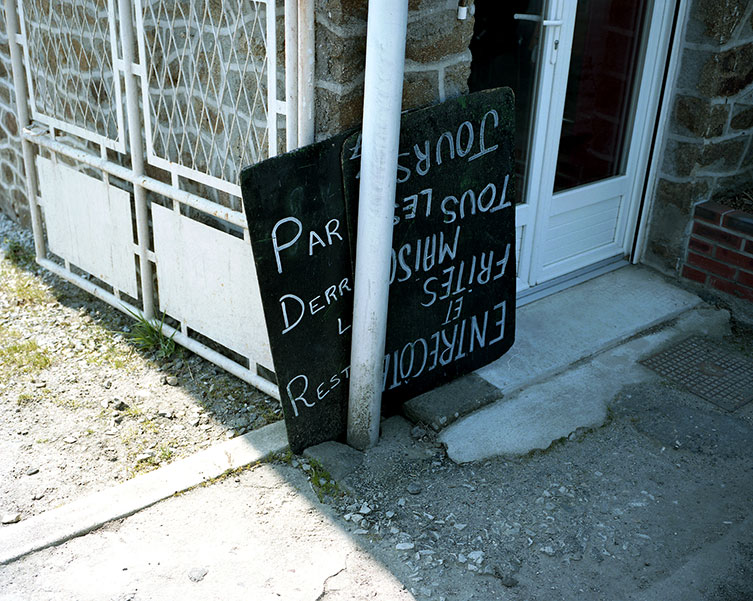 PAR
DERR
L
REST
ENTRECÔT
ET
FRITES
MAISO
TOUS LES
JOURS